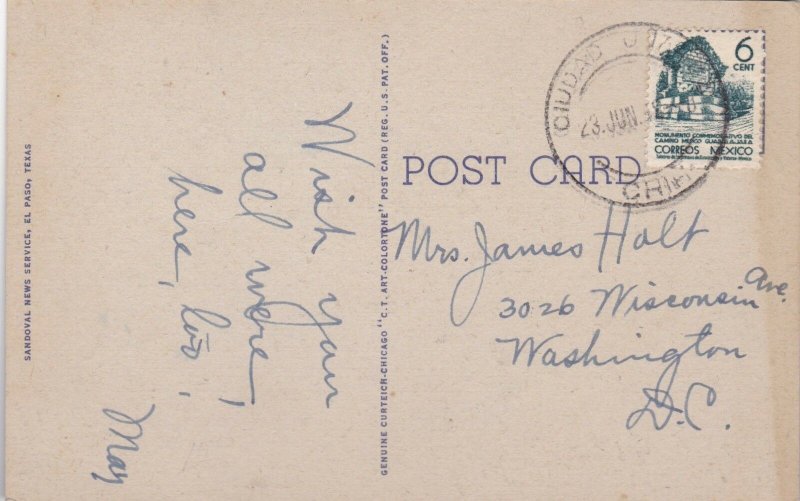 SANDOVAL NEWS SERVICE, EL PASO, TEXAS
Wish you
all were
here, too,
May
GENUINE CURTEICH-CHICAGO "C.T. ART-COLORTONE" POST CARD (REG. U.S. PAT. OFF.)
POST CARD
CIUDAD
23. JUN.
CHIH
6
CENT
MONUMENTO CONMEMORATIVO DEL
CAMINO MEXICO GUADALAJARA
CORREOS MEXICO
Mrs. James Holt
3026 Wisconsin Ave.
Washington
D.C.